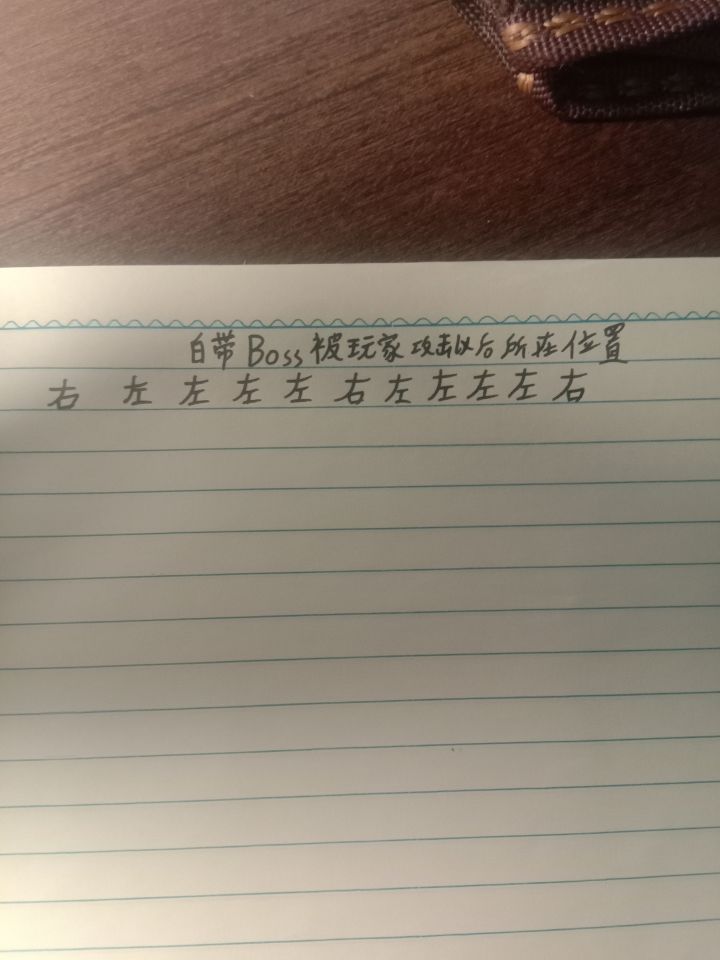 自带Boss被玩家攻击以后所在位置
右 左 左 左 左 右 左 左 左 左 右